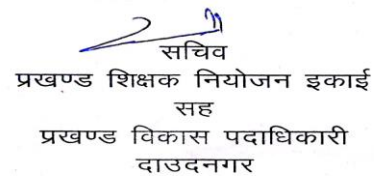 सचिव
प्रखण्ड शिक्षक नियोजन इकाई
सह
प्रखण्ड विकास पदाधिकारी
दाउदनगर